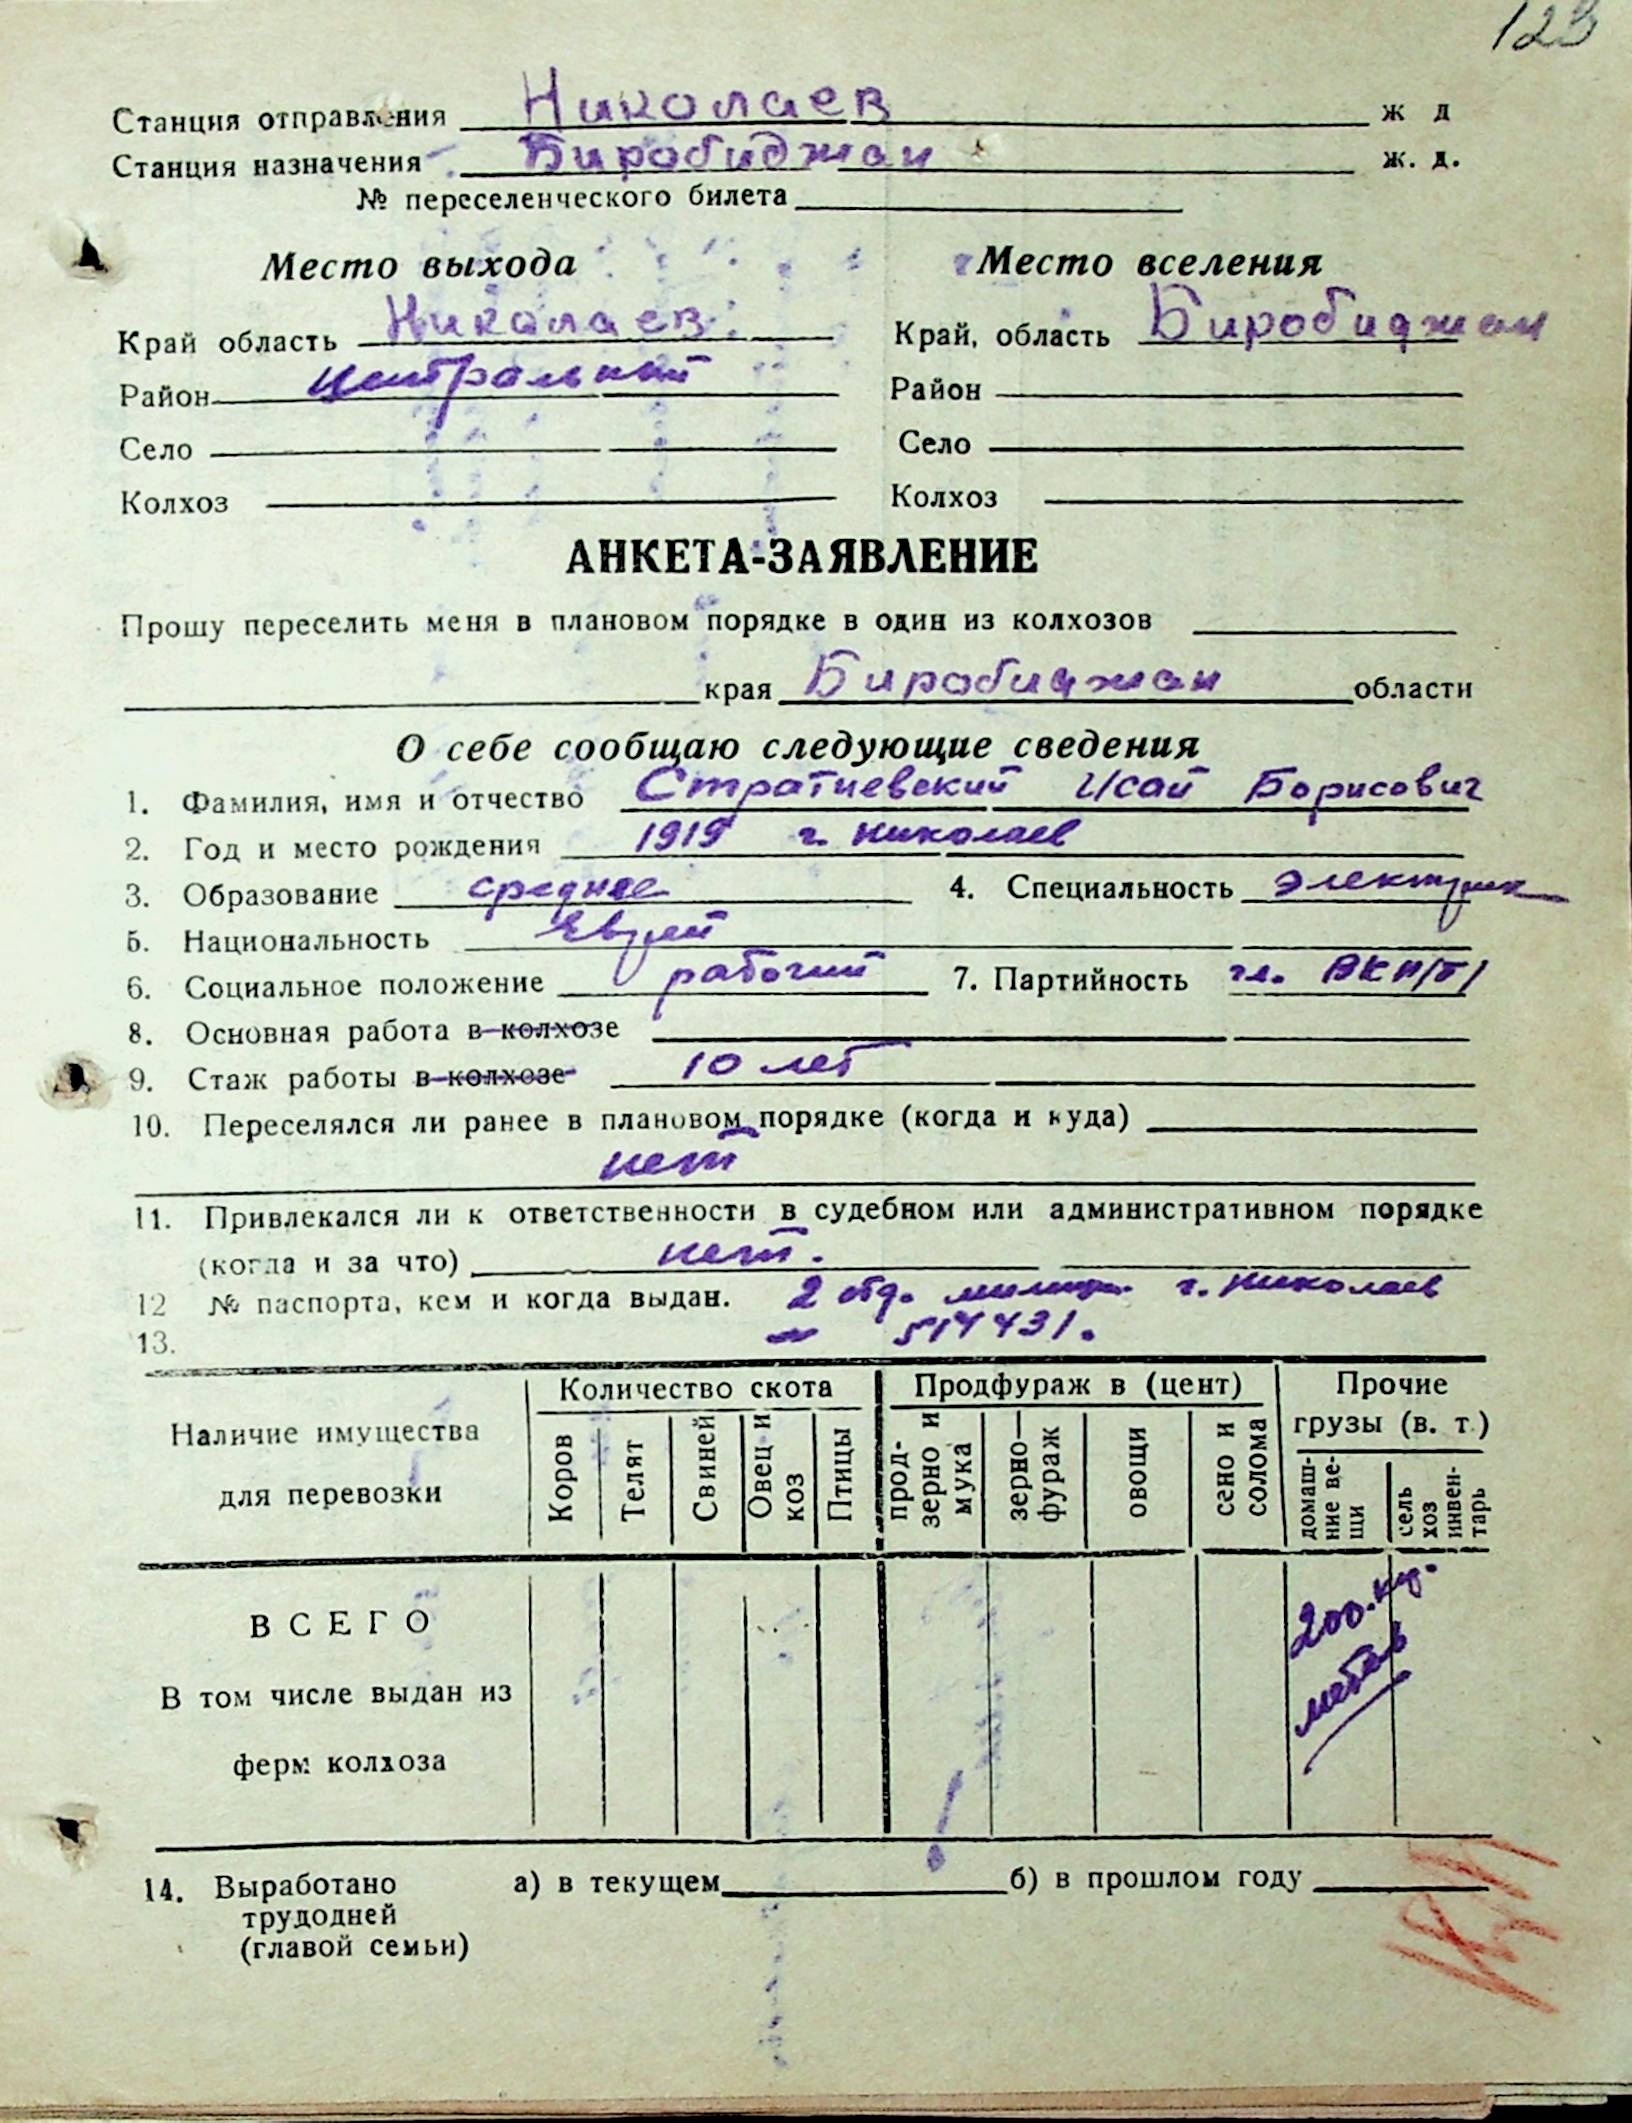 123
Станция отправления Николаев ж д
Станция назначения Биробиджан ж. д.
№ переселенческого билета
Место выхода Место вселения
Край область Николаев. Край, область Биробиджан
Район Центральный Район
Село Село
Колхоз Колхоз
АНКЕТА-ЗАЯВЛЕНИЕ
Прошу переселить меня в плановом порядке в один из колхозов
края Биробиджан области
О себе сообщаю следующие сведения
1. Фамилия, имя и отчество Стратиевский Исай Борисович
2. Год и место рождения 1919 г. Николаев
3. Образование среднее 4. Специальность электрик
5. Национальность Еврей
6. Социальное положение рабочий 7. Партийность чл. ВКП/б/
8. Основная работа в колхозе
9. Стаж работы в колхозе 10 лет
10. Переселялся ли ранее в плановом порядке (когда и куда)
нет
11. Привлекался ли к ответственности в судебном или административном порядке
(когда и за что) нет.
12 № паспорта, кем и когда выдан. 2 отд. милиции г. Николаев
13. 514431.
Наличие имущества для перевозки
Количество скота
Продфураж в (цент)
Прочие грузы (в. т.)
Коров
Телят
Свиней
Овец и коз
Птицы
прод-зерно и мука
зерно—фураж
овощи
сено и солома
домаш-ние ве-щи
сель хоз инвен-тарь
ВСЕГО 200. кг.
мебель
В том числе выдан из
ферм колхоза
14. Выработано а) в текущем б) в прошлом году
трудодней
(главой семьи)